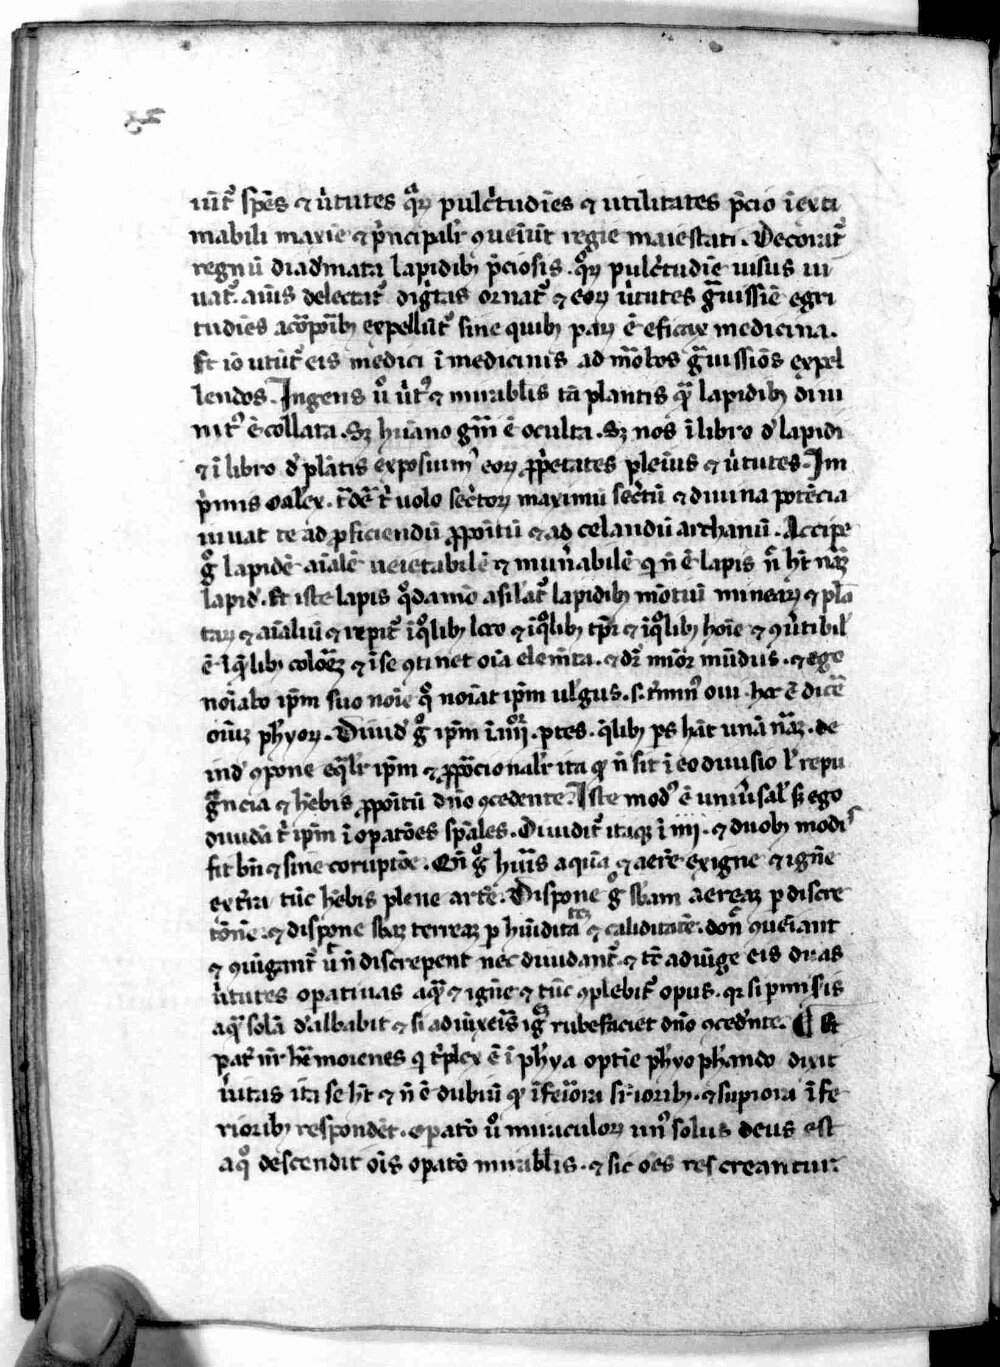 uūt᷒ spēs ⁊ ūtutes qͣꝝ pulc̄tudīes ⁊ utilitates p̄cio īexti
mabili maxīe ⁊ p̄ncipalr̄ ꝯueiūt regie maiestati. Decorāt᷒
regnū diad̄mata lapidibꝫ p̄ciosis. qͦꝝ pulc̄tudīe uisus iu
uat᷒. aīus delectat᷒ diḡtas ornat᷒ ⁊ eoꝝ ūtutes gͣuissīe egri
tudīes a corpōibꝫ expellūt᷒ sine quibꝫ paꝝ ē eficax medicina.
Et iō utūt᷒ eis medici ī medicinis ad mͦbos gͣuissīos expel
lendos. Ingens ū ūt᷒ ⁊ mirabl̄is tā plantis qͣ lapidibꝫ diui
nit᷒ ē collata. Sꝫ hūano gn̄i ē oculta. Sꝫ nos ī libro d̄ lapidi
⁊ ī libro d̄ plātis exposuim᷒ eoꝝ ꝓp̄etates pleīus ⁊ ūtutes. Im
p̄mis o alex. t̄d̄e t̄ uolo sec̄toꝝ maximū sec̄tū ⁊ diuina potēcia
iuuat te ad ꝑficiendū ꝓpōitū ⁊ ad celandū archanū. Accipe
gͦ lapidē aīalē uegetabilē ⁊ mīn̄abilē q̄ n̄ ē lapis n̄ hꝫt nāꝫ
lapid̄. Et iste lapis qͦdamō asil̄at᷒ lapidibꝫ mōtiū minēaꝝ ⁊ plā
taꝝ ⁊ aīaliū ⁊ repit᷒ ī qͦlibꝫ loco ⁊ ī qͦlibꝫ tp̄r ⁊ ī qͦlibꝫ hoīe ⁊ ꝯūtibil̄
ē ī q̄libꝫ coloēꝫ ⁊ ī se ꝯtinet oīa elem̄ta. ⁊ dr̄ mīor mūdus. ⁊ ego
noīabo ip̄m suo noīe qͦ noīat ip̄m uulgus. s. t̄min᷒ oui. hoc ē dictē
ouū ph̄oꝝ. Diuid̄ gͦ ip̄m ī iiiiᵒʳ. ptes. q̄libꝫ ps hāt unā nāꝫ. de
ind̄ ꝯpone eq̄lr̄ ip̄m ⁊ ꝓporcionalr̄ ita q̄ n̄ sit ī eo diuisio l̄ repu
gͣncia ⁊ hēbis ꝓpōitū dn̄o ꝯcedente. Iste mod᷒ ē uniūsal̄ sꝫ ego
diuidā t̄ ip̄m ī opatōes spāles. Diuidit᷒ itaqꝫ ī iiii. ⁊ duobꝫ modis
fit bn̄ ⁊ sine coruptōe. Qn̄ gͦ hūīs aquā ex aere ⁊ aerē ex igne ⁊ ignē
ex t̄ra tūc hēbis plene artē. Dispone gͦ sb̄am aereaꝫ ꝑ discre
tōnē. ⁊ dispone sb̄aꝫ terreaꝫ ꝑ hūiditatē ⁊ caliditatē. don̄ ꝯueīant
⁊ ꝯiūgant᷒ ū n̄ discrepent nec diuidant᷒. ⁊ tc̄ adiūge eis duas
ūtutes opatiuas aqͣ ⁊ ignē ⁊ tūc ꝯplebit᷒ opus. qr si pmiscis
aqͣ solā d̄albabit ⁊ si adiūxeīs igͣ rubefaciet dn̄o ꝯced̄nte. ¶ Et
pat᷒ nr̄ hͤmoienes q̄ t̄plex ē ī ph̄ya optīe ph̄yo ph̄ando dixit
ūitas ita se hꝫt ⁊ n̄ ē dubiū q̄ īfeīora supioribꝫ. ⁊ supiora īfe
rioribꝫ respondēt. opatō ū miraculoꝝ un᷒ solus deus est
a qͦ descendit oīs opatō mirabl̄is. ⁊ sic oēs res creantur